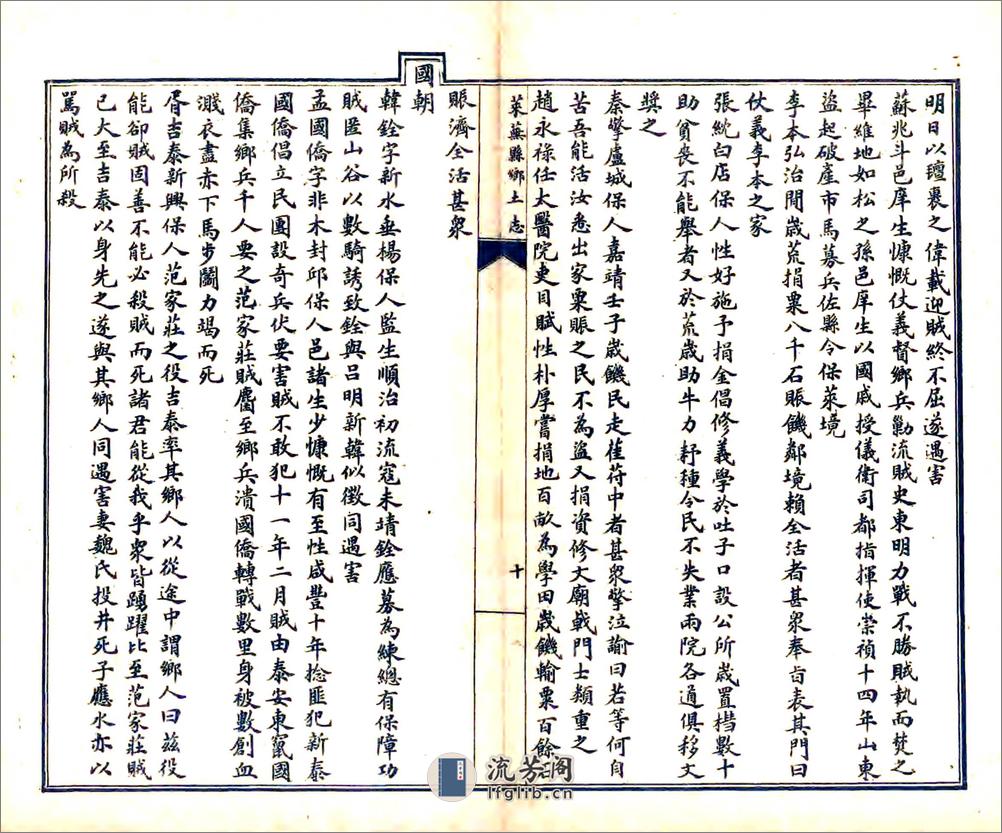 明日以氊裹之偉載迎賊終不屈遂遇害
蘇兆斗邑庠生慷慨仗義督鄉兵勦流賊史東明力戰不勝賊執而焚之
畢維地如松之孫邑庠生以國戚授儀衛司都指揮使崇禎十四年山東
盜起破產市馬募兵佐縣令保萊境
李本弘治間歲荒捐粟八千石賑饑鄰境賴全活者甚眾奉旨表其門曰
仗義李本之家
張統白店保人性好施予捐金倡修義學於吐子口設公所歲置槥數十
助貧喪不能舉者又於荒歲助牛力耔種令民不失業兩院各道俱移文
獎之
秦擎盧城保人嘉靖壬子歲饑民走萑苻中者甚眾擎泣諭曰若等何自
苦吾能活汝悉出家粟賑之民不為盜又捐資修文廟戟門士類重之
趙永祿任太醫院吏目賦性朴厚嘗捐地百畝為學田歲饑輸粟百餘石
萊蕪縣鄉土志
十
賑濟全活甚眾
國朝
韓銓字新水垂楊保人監生順治初流寇未靖銓應募為練總有保障功
賊匿山谷以數騎誘致銓與呂明新韓似徵同遇害
孟國僑字非木封邱保人邑諸生少慷慨有至性咸豐十年捻匪犯新泰
國僑倡立民團設奇兵伏要害賊不敢犯十一年二月賊由泰安東竄國
僑集鄉兵千人要之范家莊賊麕至鄉兵潰國僑轉戰數里身被數創血
濺衣盡赤下馬步鬬力竭而死
胥吉泰新興保人范家莊之役吉泰率其鄉人以從途中謂鄉人曰茲役
能卻賊固善不能必殺賊而死諸君能從我乎眾皆踴躍比至范家莊賊
已大至吉泰以身先之遂與其鄉人同遇害妻魏氏投井死子應水亦以
罵賊為所殺
流芳阁
lfglib.cn